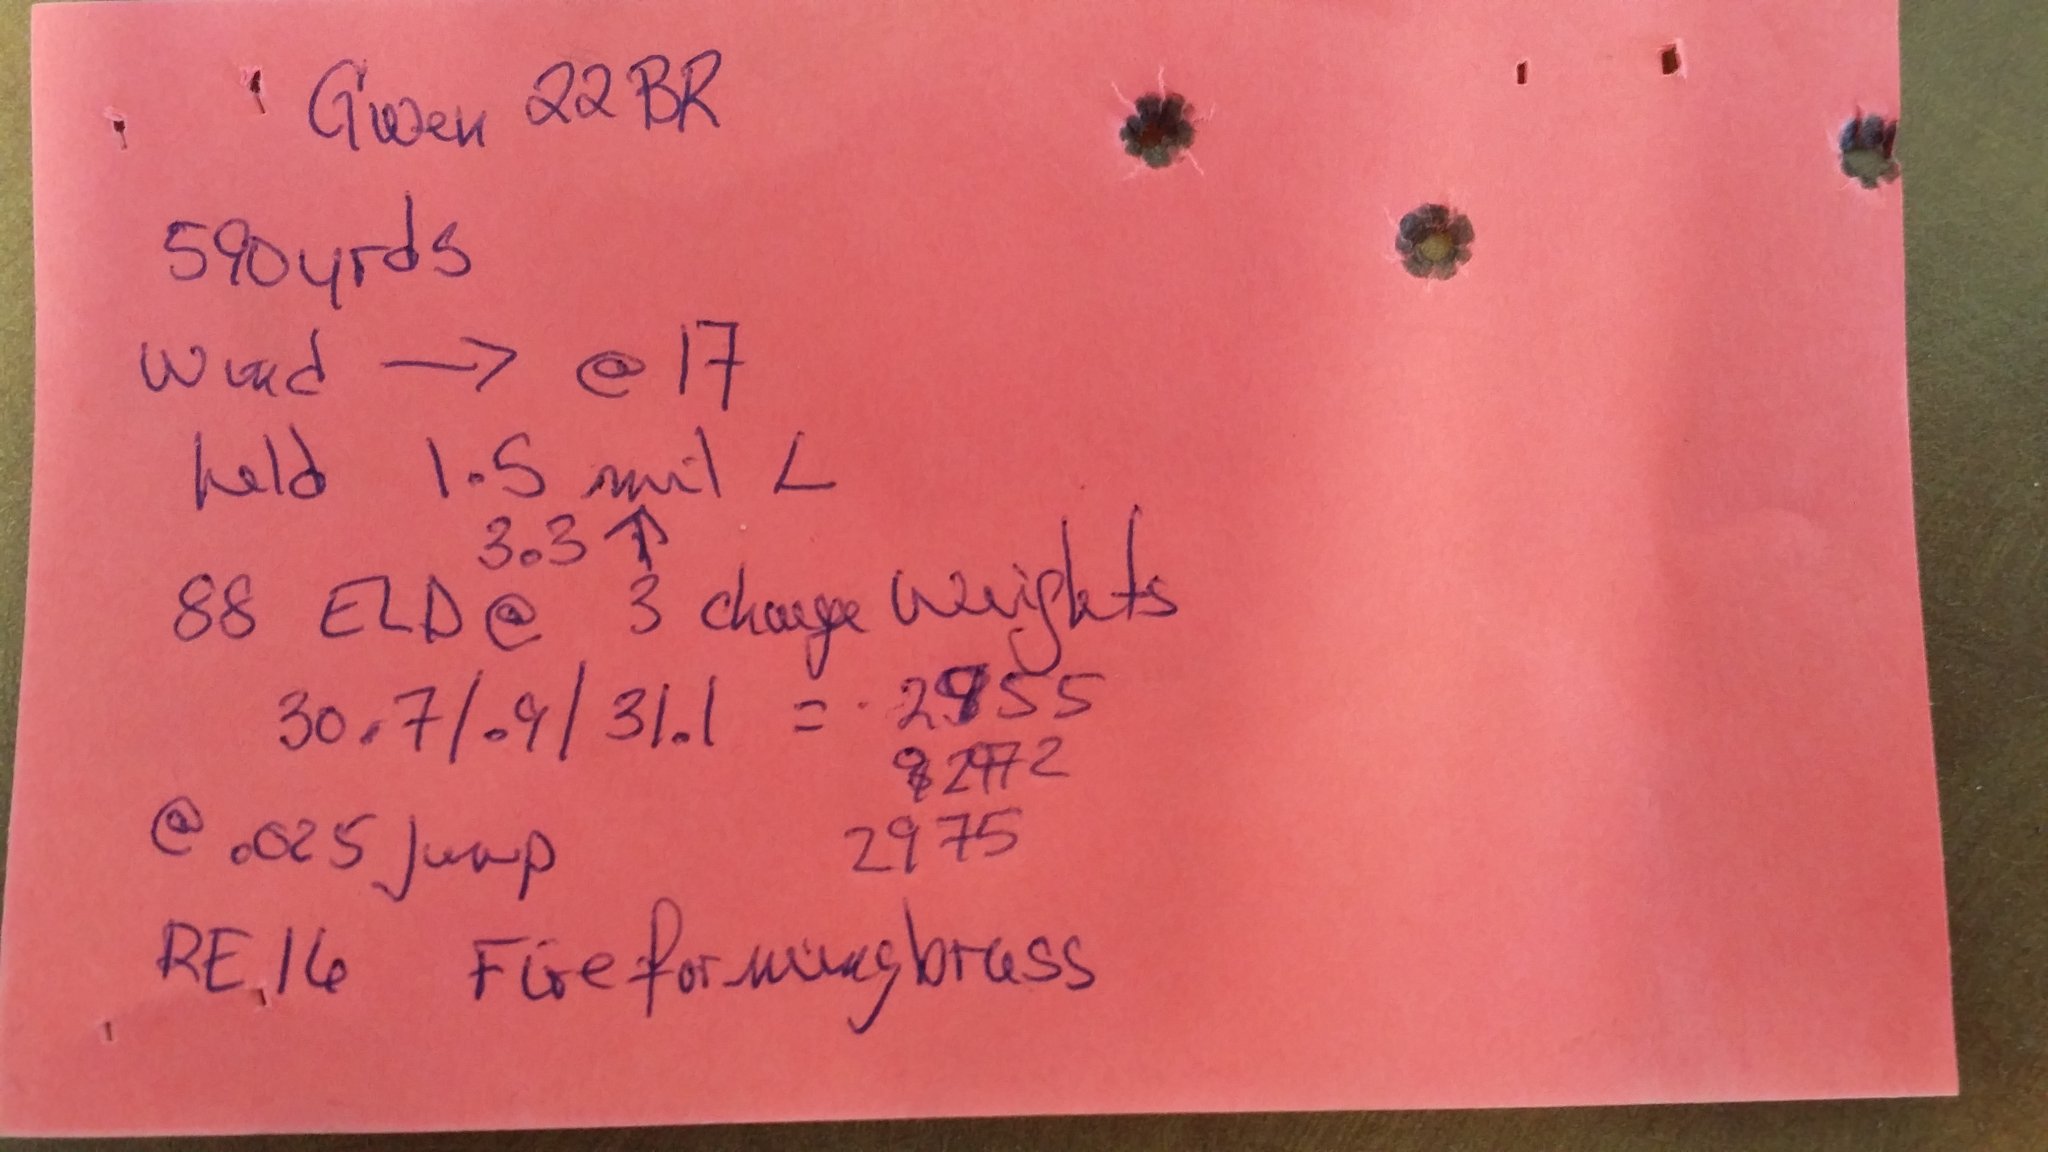 Gwen 22BR
590yrds
Wind → @ 17
held 1.5 mil L
3.3 ↑
88 ELD @ 3 charge weights
30.7/.9/31.1 =
2972
@ .025 jump 2975
RE.16 Fireforming brass